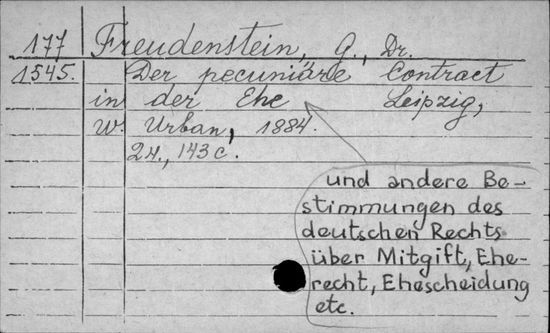 177 Freudenstein, G., Dr.
1545. Der pecuniäre Contract
in der Ehe Leipzig,
W. Urban, 1884.
24., 143 c.
und andere Be-
stimmungen des
deutschen Rechts
über Mitgift, Ehe-
recht, Ehescheidung
etc.